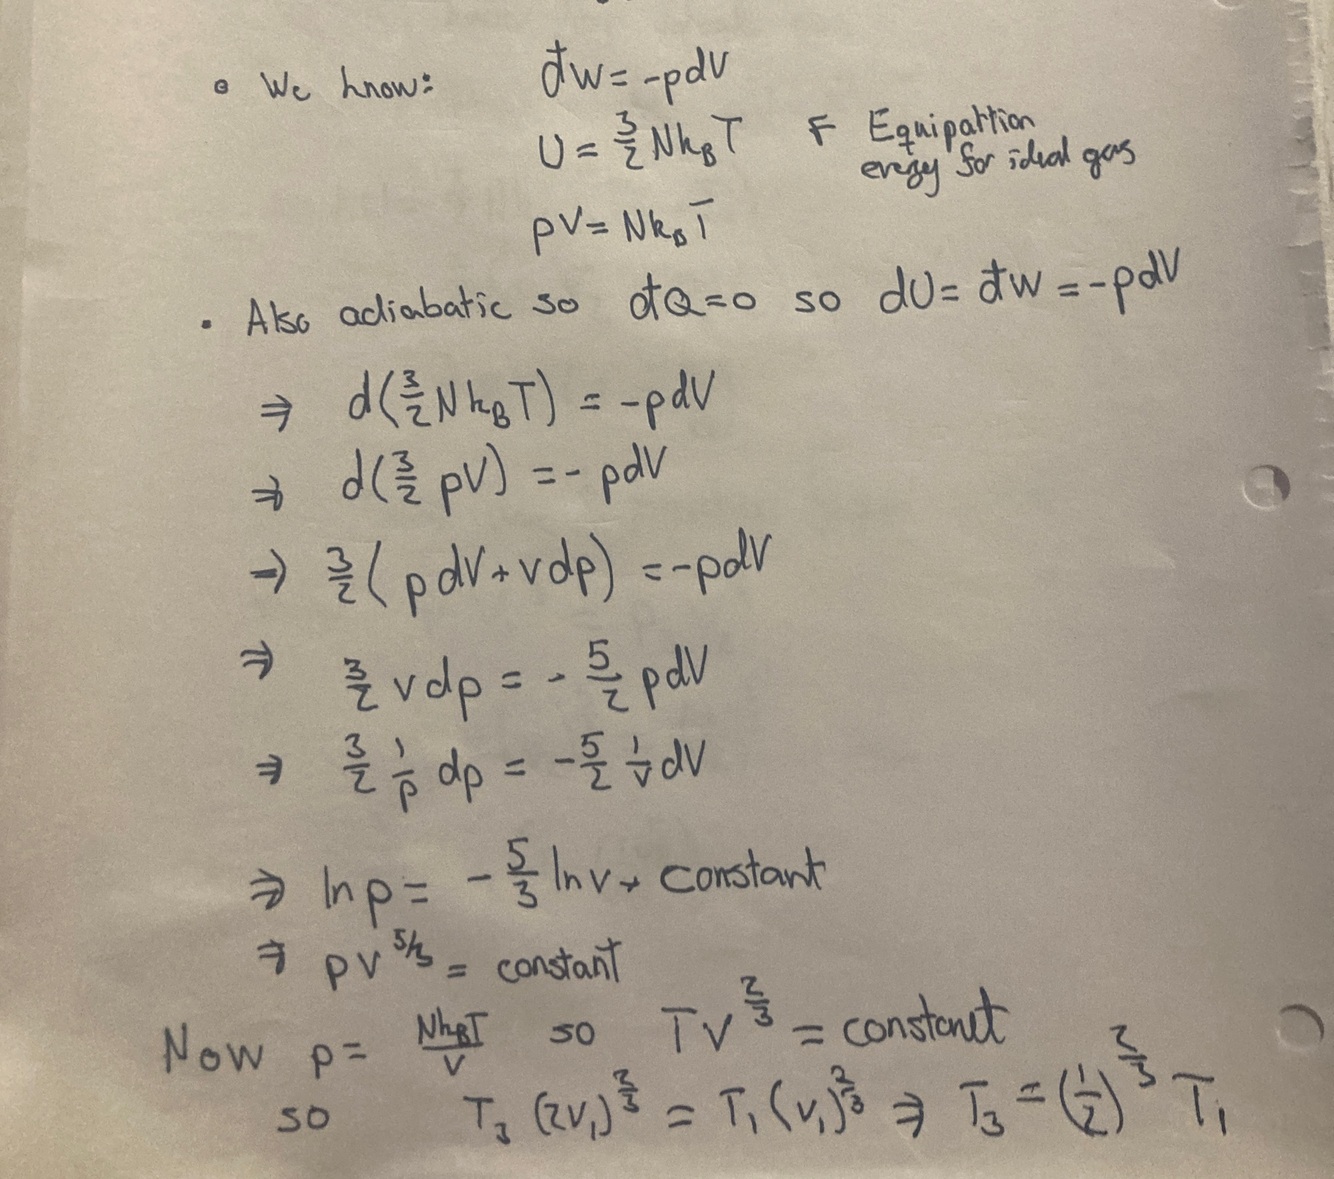 • We know: đW = -pdV
U = 3/2 Nk_BT F Equipartion
enegy for ideal gas
pV = Nk_BT
• Also adiabatic so đQ = 0 so dU = đW = -pdV
⇒ d(3/2 Nk_BT) = -pdV
⇒ d(3/2 pV) = -pdV
⇒ 3/2 (pdV + Vdp) = -pdV
⇒ 3/2 Vdp = -5/2 pdV
⇒ 3/2 1/p dp = -5/2 1/V dV
⇒ ln p = -5/3 ln V + constant
⇒ pV^5/3 = constant
Now p = Nk_BT/V so TV^2/3 = constant
so T_3 (2V_1)^2/3 = T_1 (V_1)^2/3 ⇒ T_3 = (1/2)^2/3 T_1